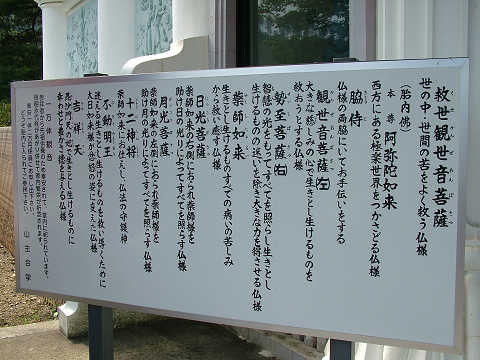 救世観世音菩薩
世の中、世間の苦をよく救う仏様
(胎内佛)
本尊 阿弥陀如来
西方にある極楽世界をつかさどる仏様
脇侍
仏様の両脇にいてお手伝いをする
観世音菩薩(左)
大きな慈しみの心で生きとし生けるものを
救おうとする仏様
勢至菩薩(右)
智慧の光をもってすべてを照らし生きとし
生けるものの迷いを除き大きな力を得させる仏様
薬師如来
生きとし生けるものすべての病いの苦しみ
から救い癒す仏様
日光菩薩
薬師如来の右側におられ薬師様を
助け日の光りによってすべてを照らす仏様
月光菩薩
薬師如来の左側におられ薬師様を
助け月の光りによってすべてを照らす仏様
十二神将
薬師如来にお仕えし、仏法の守護神
不動明王
迷える生きとし生けるものを救い導くために
大日如来様が忿怒の姿に変えた仏様
吉祥天
毘沙門天の妃で生きとし生けるものに
幸わせを与え徳を与える仏様
一万体観音